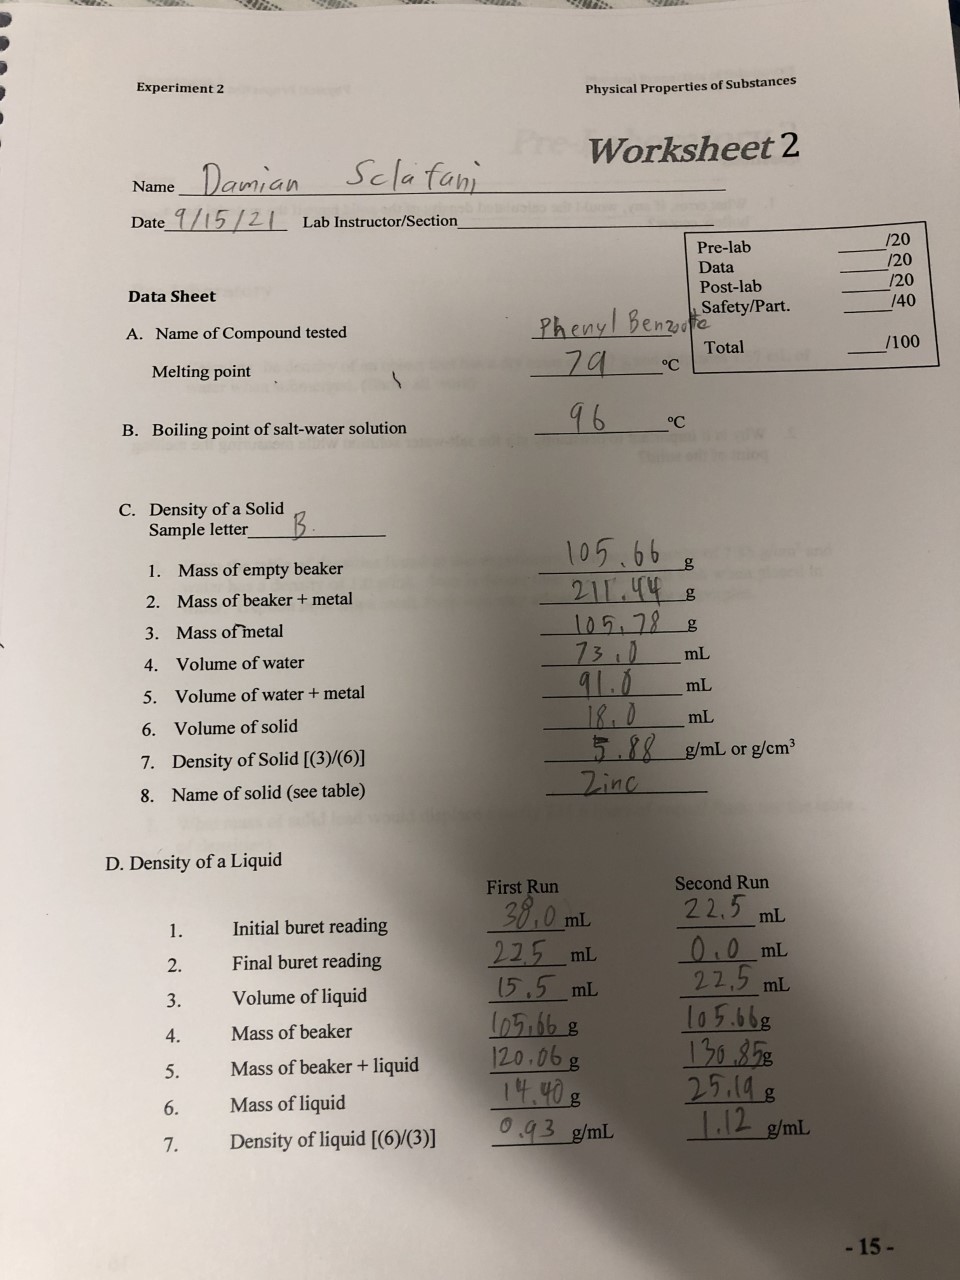 Experiment 2 Physical Properties of Substances
Worksheet 2
Name Damian Sclafani
Date 9/15/21 Lab Instructor/Section
Pre-lab /20
Data /20
Post-lab /20
Safety/Part. /40
Total /100
Data Sheet
A. Name of Compound tested Phenyl Benzoate
Melting point 79 °C
B. Boiling point of salt-water solution 96 °C
C. Density of a Solid
Sample letter B.
1. Mass of empty beaker 105.66 g
2. Mass of beaker + metal 211.44 g
3. Mass of metal 105.78 g
4. Volume of water 73.0 mL
5. Volume of water + metal 91.0 mL
6. Volume of solid 18.0 mL
7. Density of Solid [(3)/(6)] 5.88 g/mL or g/cm³
8. Name of solid (see table) Zinc
D. Density of a Liquid
First Run Second Run
1. Initial buret reading 38.0 mL 22.5 mL
2. Final buret reading 22.5 mL 0.0 mL
3. Volume of liquid 15.5 mL 22.5 mL
4. Mass of beaker 105.66 g 105.66 g
5. Mass of beaker + liquid 120.06 g 130.85 g
6. Mass of liquid 14.40 g 25.19 g
7. Density of liquid [(6)/(3)] 0.93 g/mL 1.12 g/mL
- 15 -